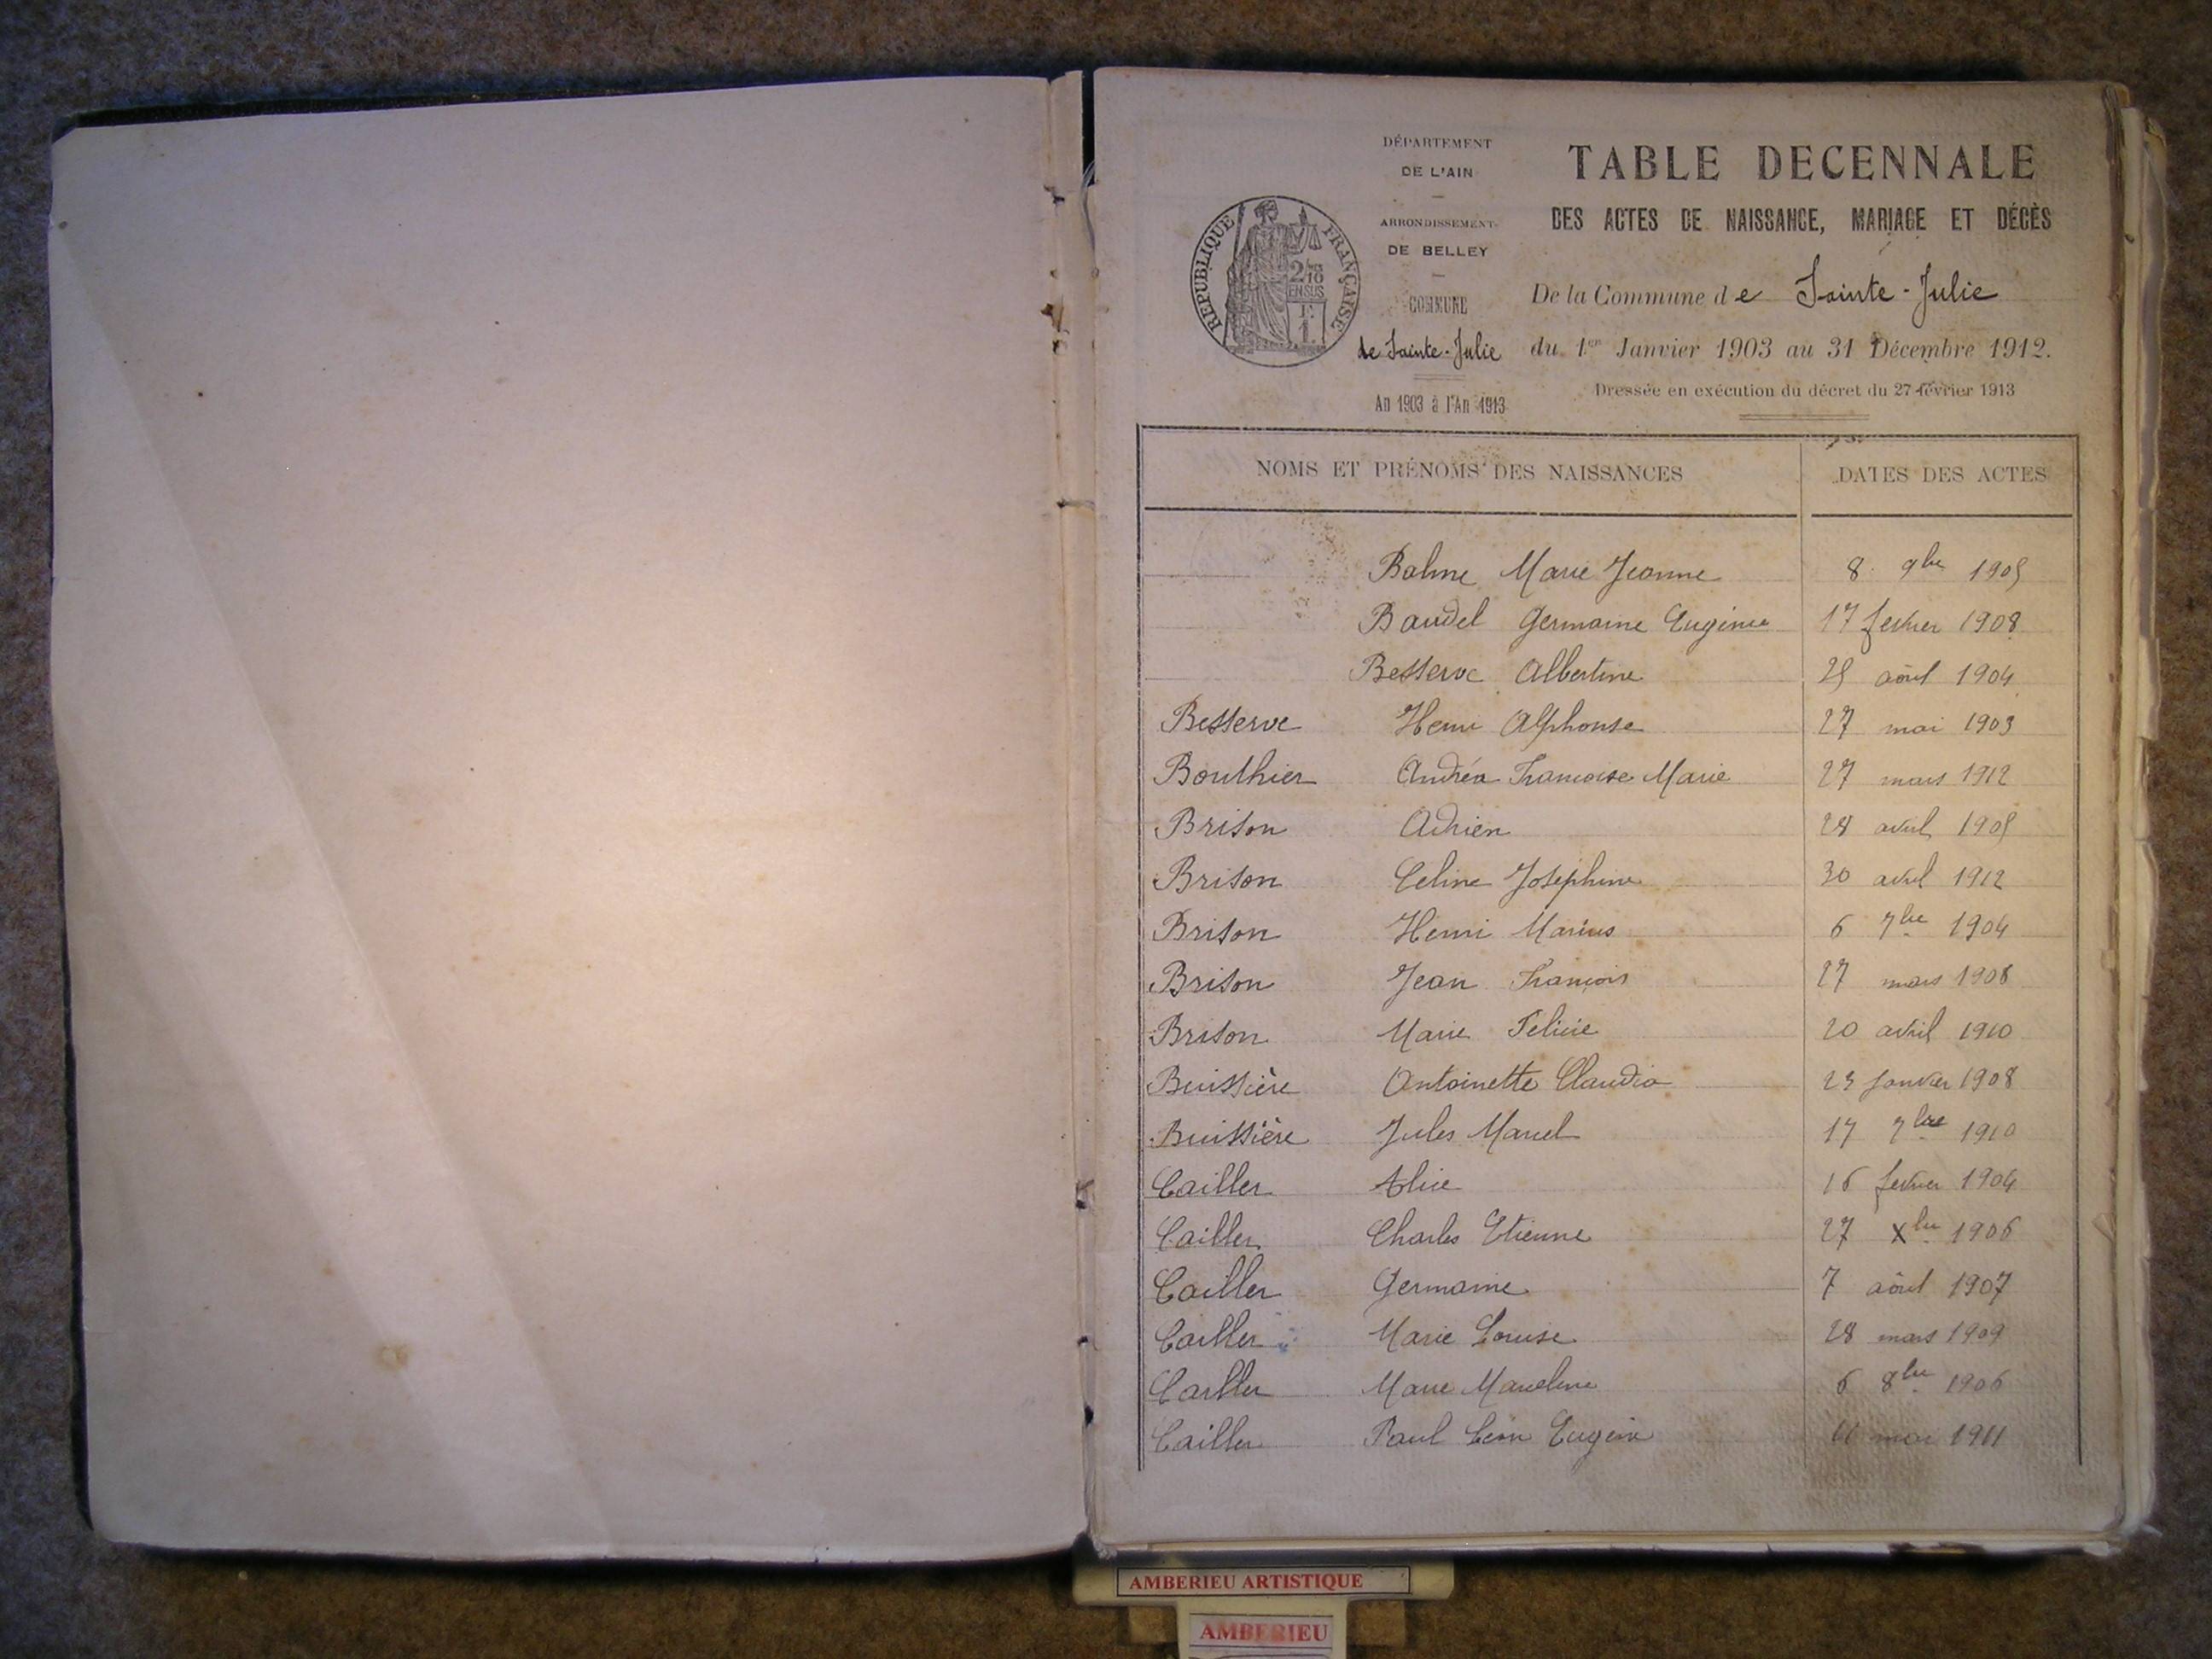 DÉPARTEMENT
DE L'AIN
ARRONDISSEMENT
DE BELLEY
COMMUNE
de Sainte-Julie
An 1903 à l'An 1913
RÉPUBLIQUE FRANÇAISE
2/10
EN SUS
TABLE DECENNALE
DES ACTES DE NAISSANCE, MARIAGE ET DÉCÈS
De la Commune de Sainte-Julie
du 1er Janvier 1903 au 31 Décembre 1912.
Dressée en exécution du décret du 27 février 1913
NOMS ET PRÉNOMS DES NAISSANCES DATES DES ACTES
Balme Marie Jeanne 8 9bre 1905
Baudel Germaine Eugénie 17 fevrier 1908
Besserve Albertine 25 août 1904
Besserve Henri Alphonse 27 mai 1903
Bouthier Andréa Francoise Marie 27 mars 1912
Brison Adrien 28 avril 1905
Brison Celine Josephine 30 avril 1912
Brison Henri Marius 6 7bre 1904
Brison Jean François 27 mars 1908
Brison Marie Felicie 20 avril 1910
Buissière Antoinette Claudia 23 janvier 1908
Buissière Jules Marcel 17 7bre 1910
Cailler Alice 16 fevrier 1904
Cailler Charles Etienne 27 Xbre 1906
Cailler Germaine 7 août 1907
Cailler Marie Louise 28 mars 1909
Cailler Marie Marceline 6 8bre 1906
Cailler Paul Léon Eugène mai 1911
AMBERIEU ARTISTIQUE
AMBERIEU